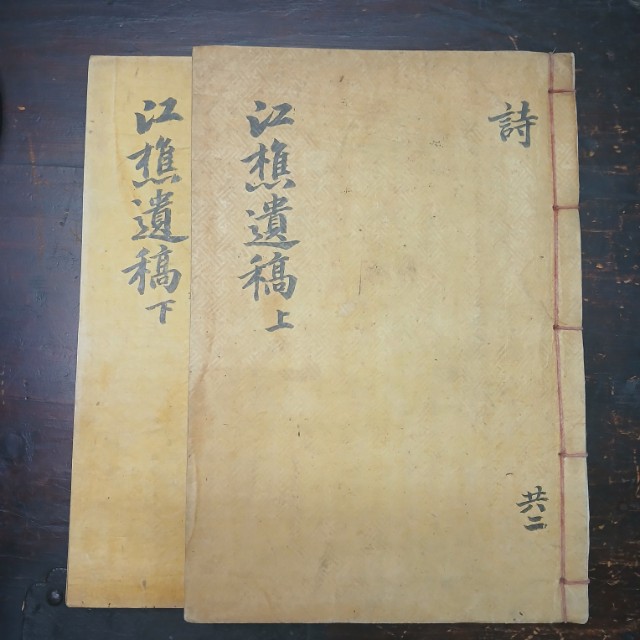 詩
江樵遺稿 上
共二
江樵遺稿 下